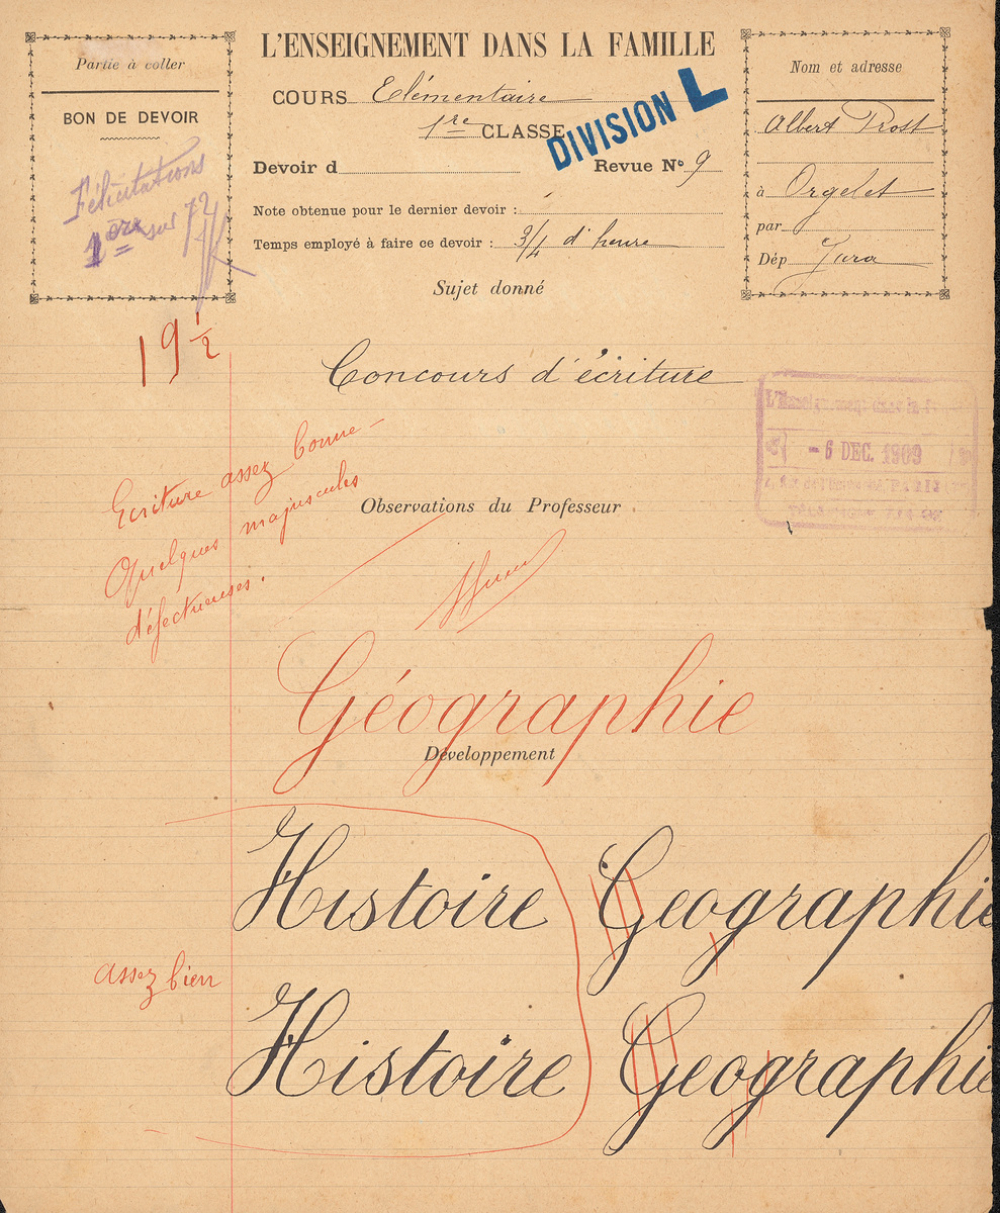 Partie à coller
BON DE DEVOIR
Félicitations
1ere sur 72
L'ENSEIGNEMENT DANS LA FAMILLE
COURS Elémentaire
1re CLASSE
DIVISION L
Devoir d
Revue No 9
Note obtenue pour le dernier devoir :
Temps employé à faire ce devoir : 3/4 d'heure
Nom et adresse
Albert Prost
à Orgelet
par
Dép Jura
Sujet donné
19 1/2
Concours d'écriture
L'Enseignement dans la famille
- 6 DEC. 1909
PARIS
Ecriture assez bonne -
Quelques majuscules
défectueuses.
Observations du Professeur
Géographie
Développement
Histoire Geographie
assez bien
Histoire Geographie